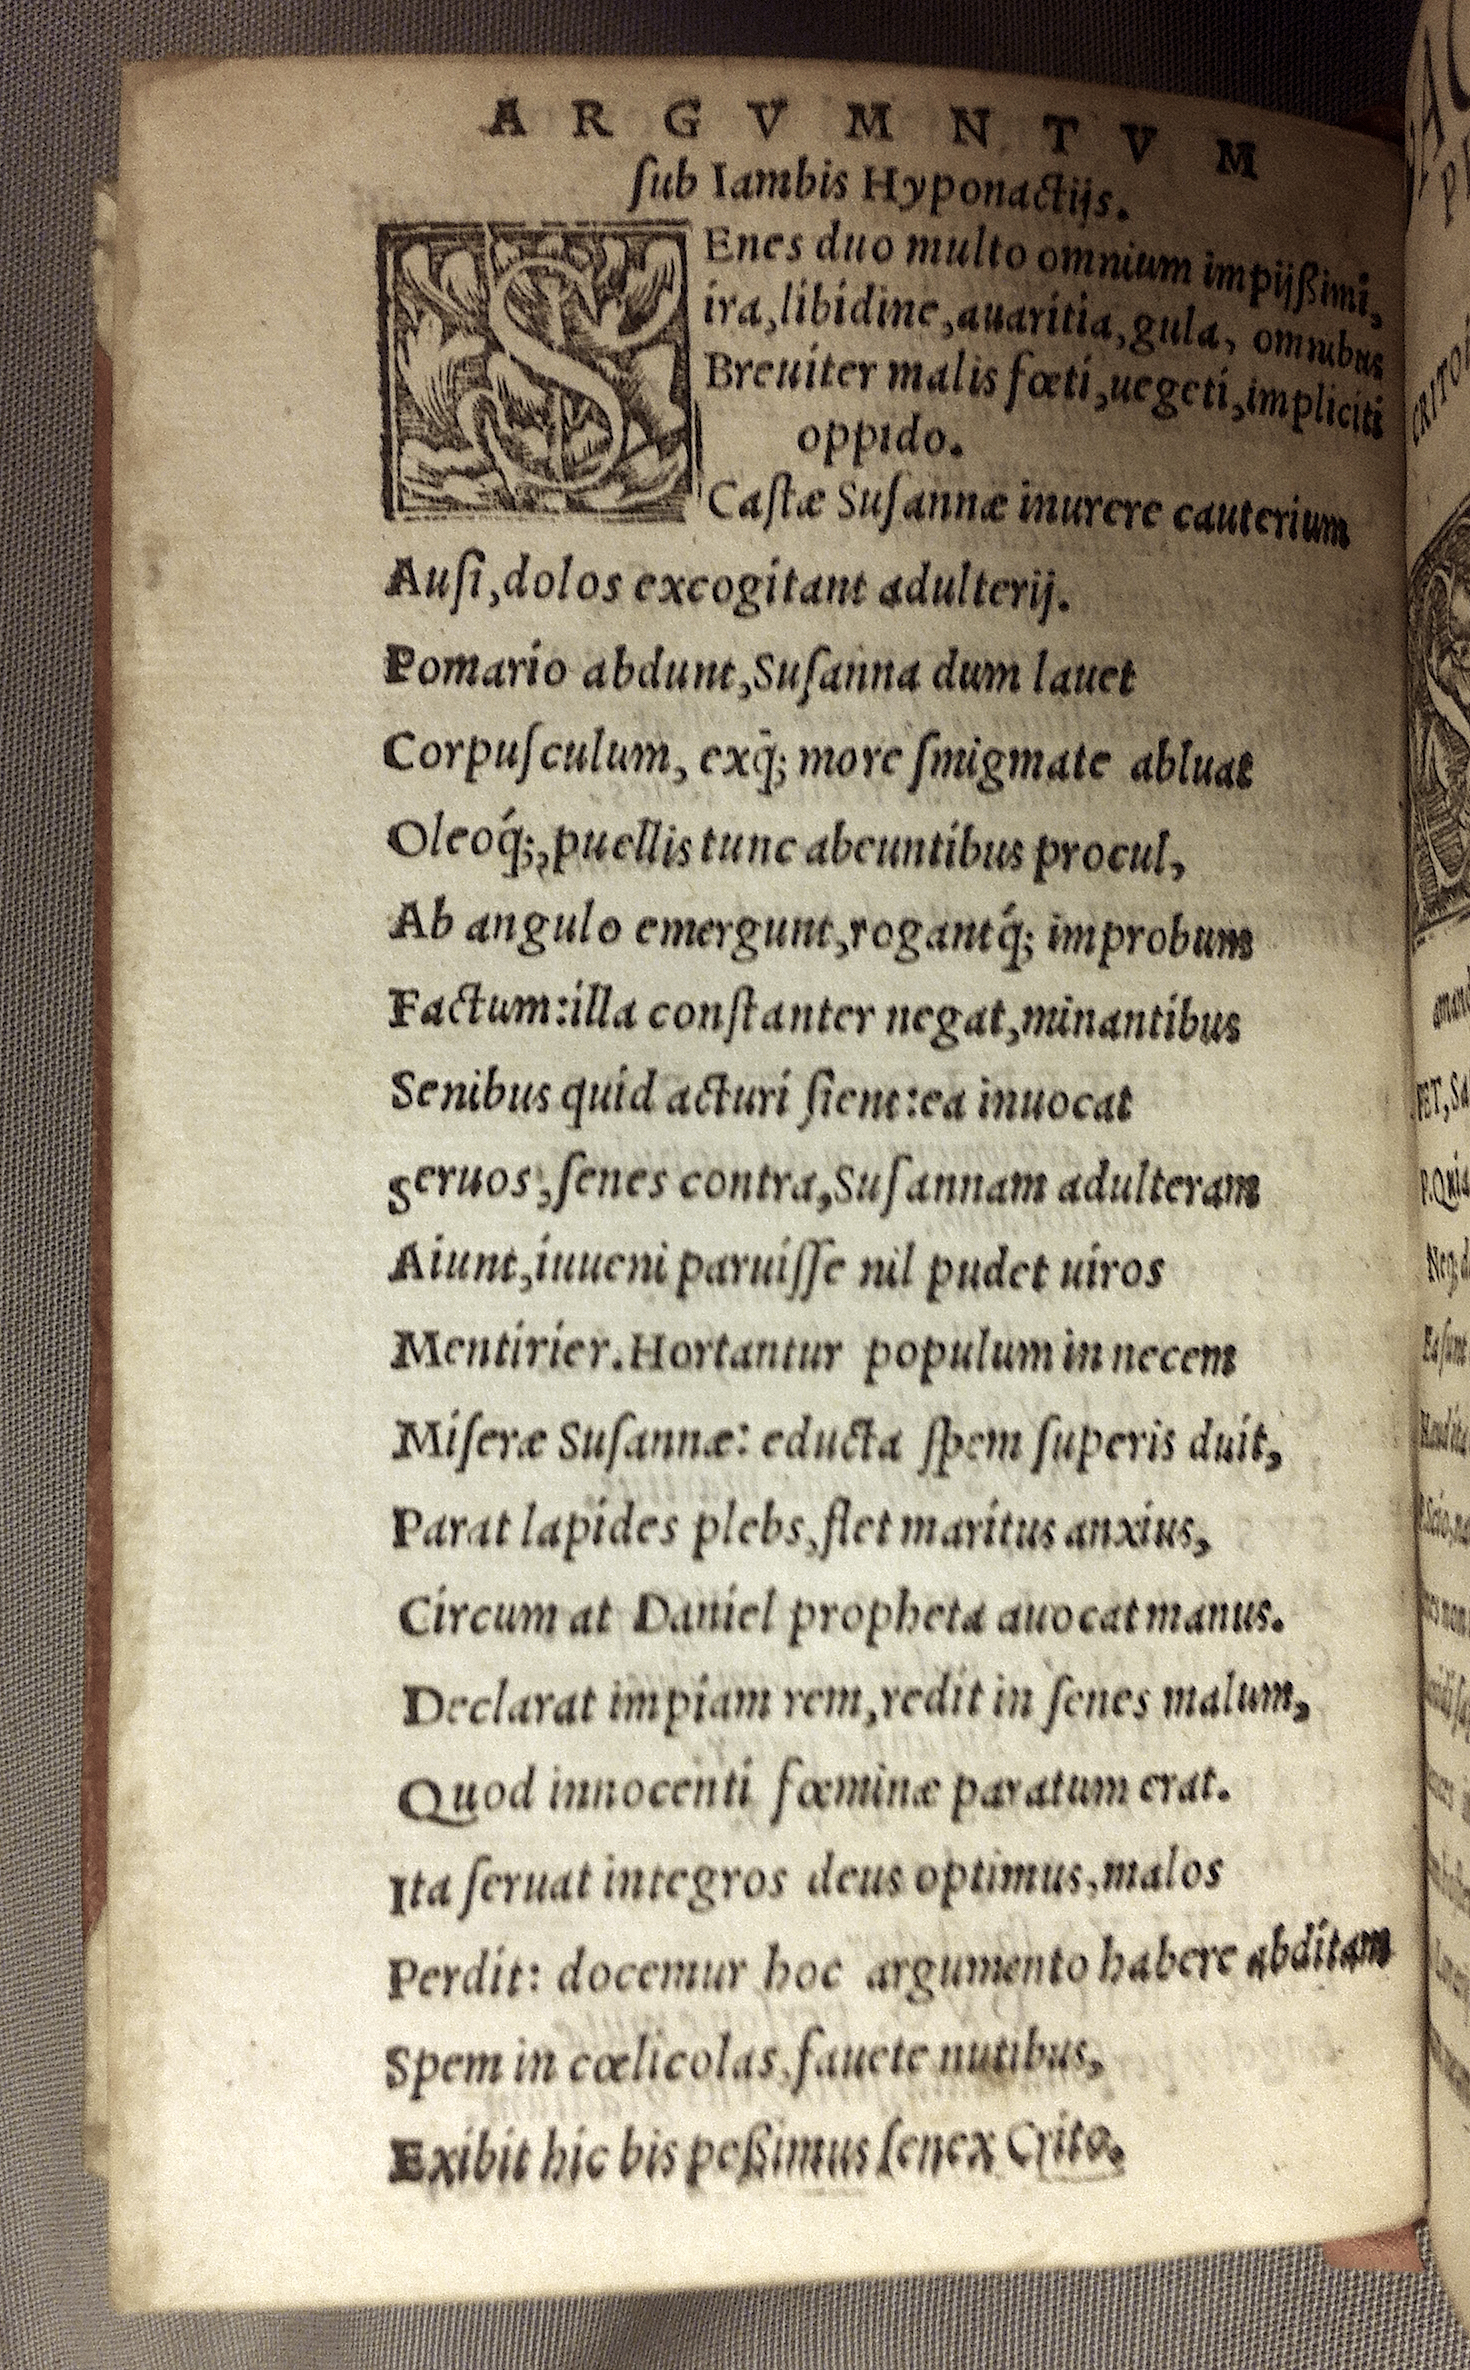 ARGVMNTVM
ſub Iambis Hyponactijs.
SEnes duo multo omnium impijßimi,
ira,libidine,auaritia,gula, omnibus
Breuiter malis fœti,uegeti,impliciti
oppido.
Caſtæ Suſannæ inurere cauterium
Auſi,dolos excogitant adulterij.
Pomario abdunt,Suſanna dum lauet
Corpuſculum, exq̃; more ſmigmate abluat
Oleoq́;,puellis tunc abeuntibus procul,
Ab angulo emergunt,rogantq́; improbum
Factum:illa conſtanter negat,minantibus
Senibus quid acturi ſient:ea inuocat
Seruos,ſenes contra,Suſannam adulteram
Aiunt,iuueni paruiſſe nil pudet uiros
Mentirier.Hortantur populum in necem
Miſeræ Suſannæ: educta ſpem ſuperis duit,
Parat lapides plebs,flet maritus anxius,
Circum at Daniel propheta auocat manus.
Declarat impiam rem,redit in ſenes malum,
Quod innocenti fœminæ paratum erat.
Ita ſeruat integros deus optimus,malos
Perdit: docemur hoc argumento habere abditam
Spem in cœlicolas,fauete nutibus,
Exibit hic bis peßimus ſenex Crito.
CRITO
amand
PET,Sa
P.Quia
Neq; d
Ea ſunt
Haud ita